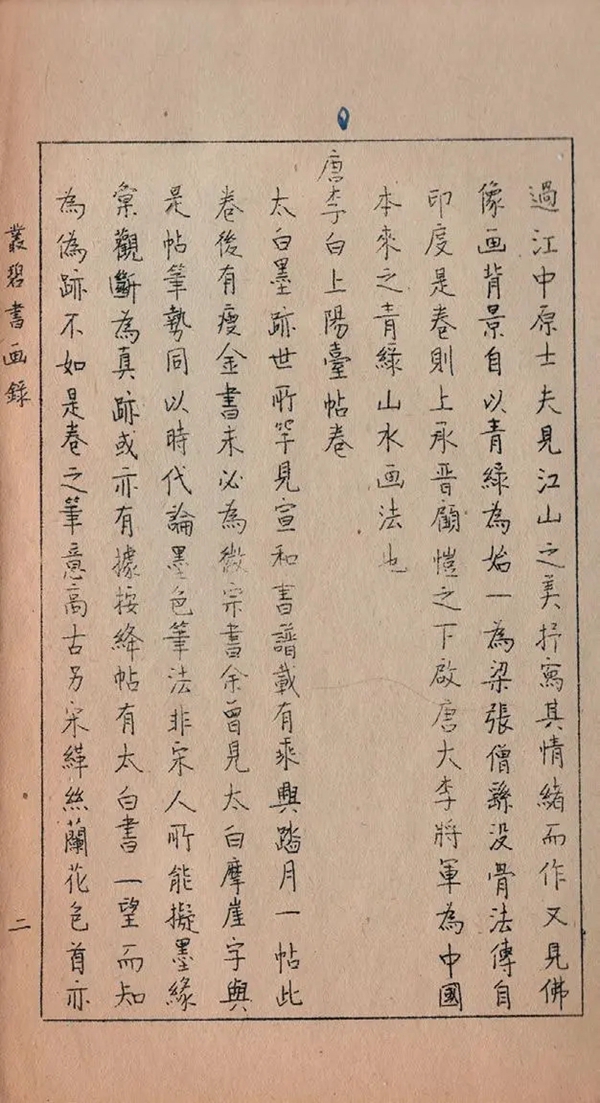 過江中原士夫見江山之美抒寫其情緒而作又見佛
像画背景自以青綠為始一為梁張僧繇没骨法傳自
印度是卷則上承晋顧愷之下啟唐大李將軍為中國
本來之青綠山水画法也
唐李白上陽臺帖卷
太白墨跡世所罕見宣和書譜載有乘興踏月一帖此
卷後有瘦金書未必為徽宗書余曾見太白摩崖字與
是帖筆勢同以時代論墨色筆法非宋人所能擬墨緣
彙觀斷為真跡或亦有據按絳帖有太白書一望而知
為偽跡不如是卷之筆意高古另宋緙絲蘭花色首亦
叢碧書画錄
二